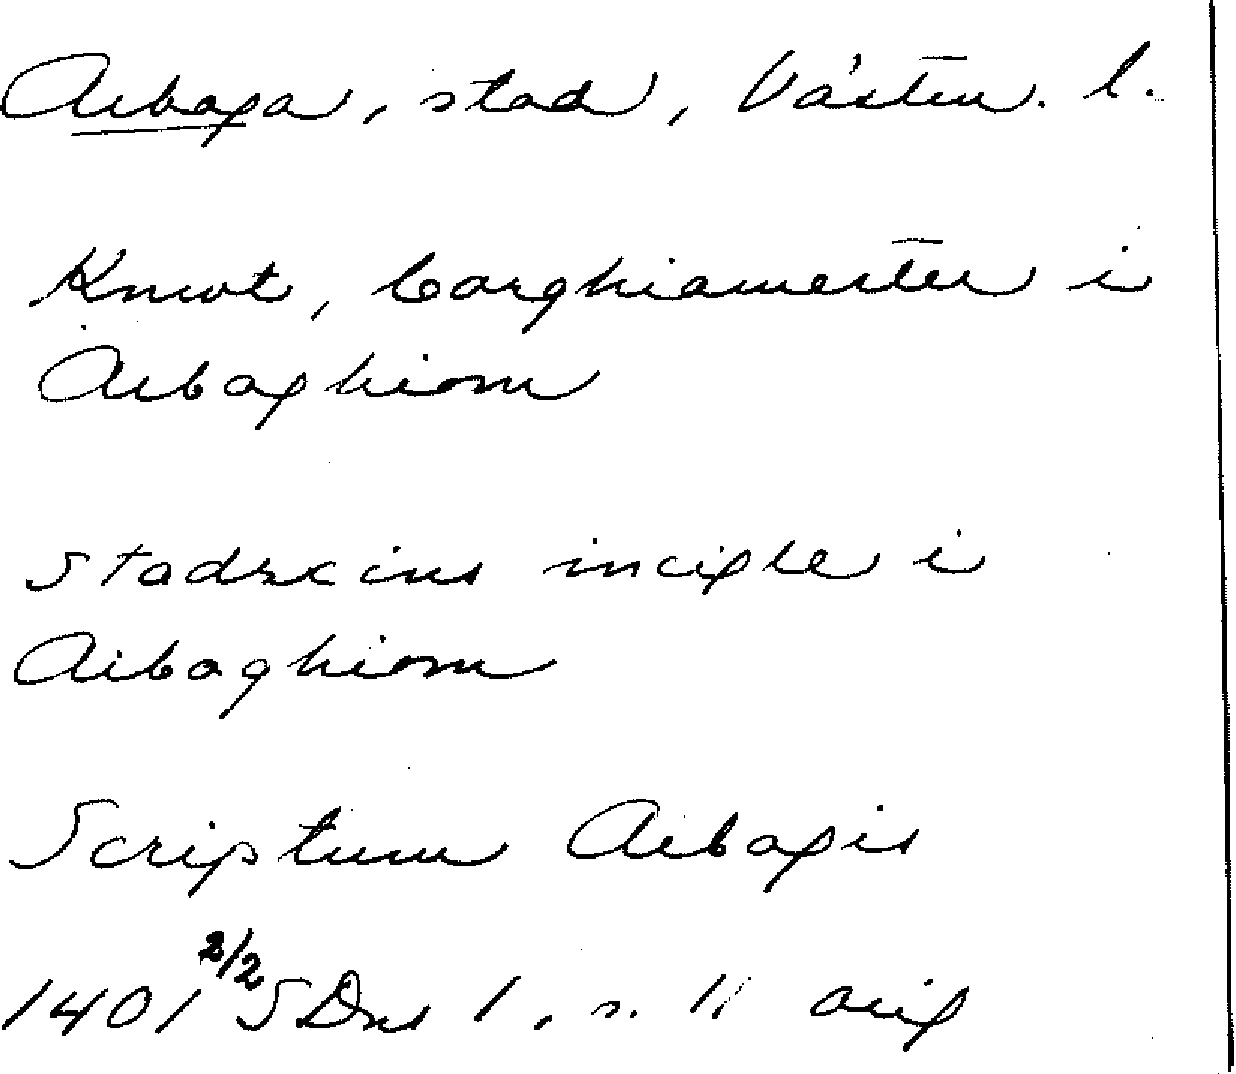 Arboga, stad, Västm. l.
Knwt, borghiamester i
Arboghiom
Stadzsins incigle i
Arboghiom
Scriptum Arbogis
1401 2/2 SDns 1, s. 11 orig